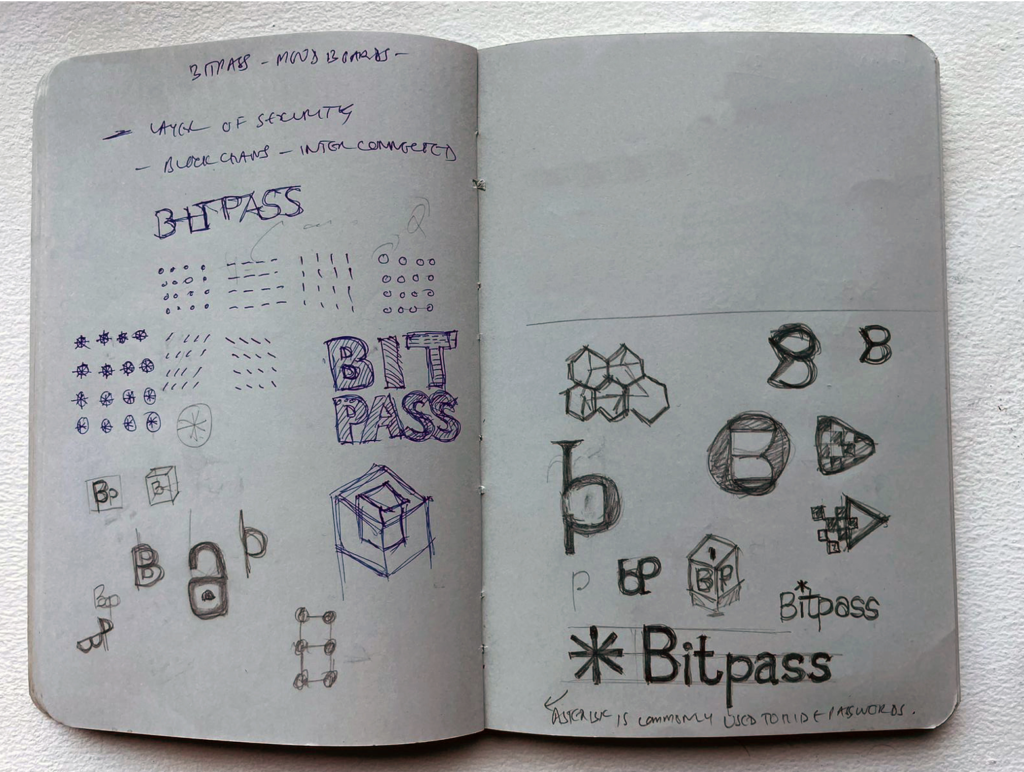 BITPASS - MOOD BOARDS -
- LAYER OF SECURITY
- BLOCK CHAINS - INTERCONNECTED
BITPASS
BIT
PASS
Bp
B
b
Bp
B
B
B
b
P
bP
BP
Bitpass
* Bitpass
ASTERISK IS COMMONLY USED TO HIDE PASSWORDS.